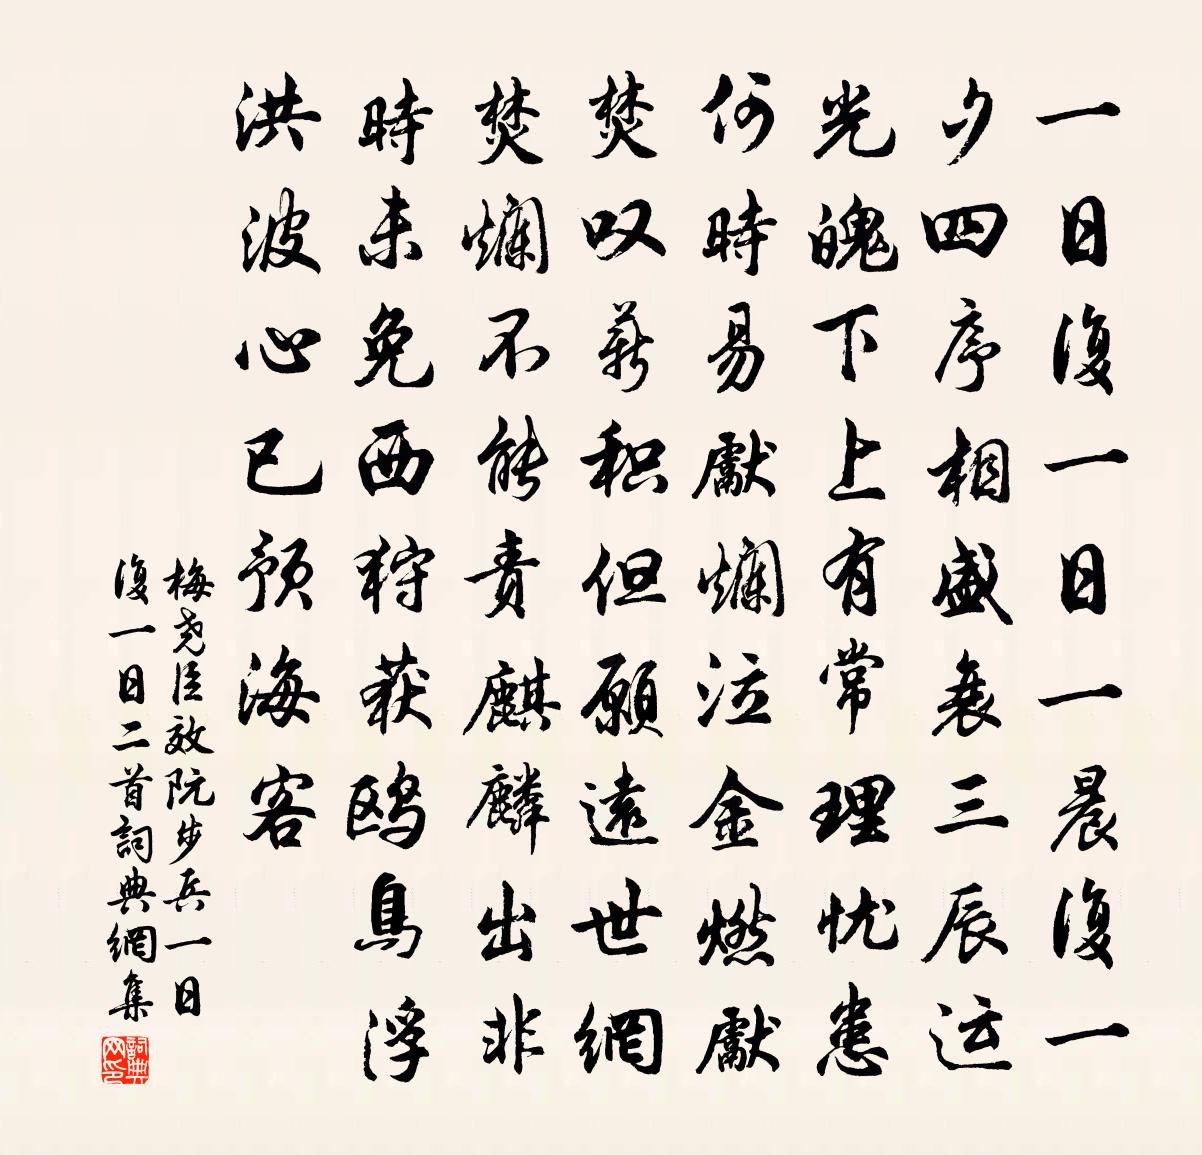 一日復一日一晨復一
夕四序相盛衰三辰运
光魄下上有常理忧患
何時易獻爛泣金燃獻
焚叹薪积但願遠世網
焚爛不能责麒麟出非
時未免西狩获鸥鳥浮
洪波心已预海客
梅尧臣效阮步兵一日
復一日二首詞典網集
詞典网印